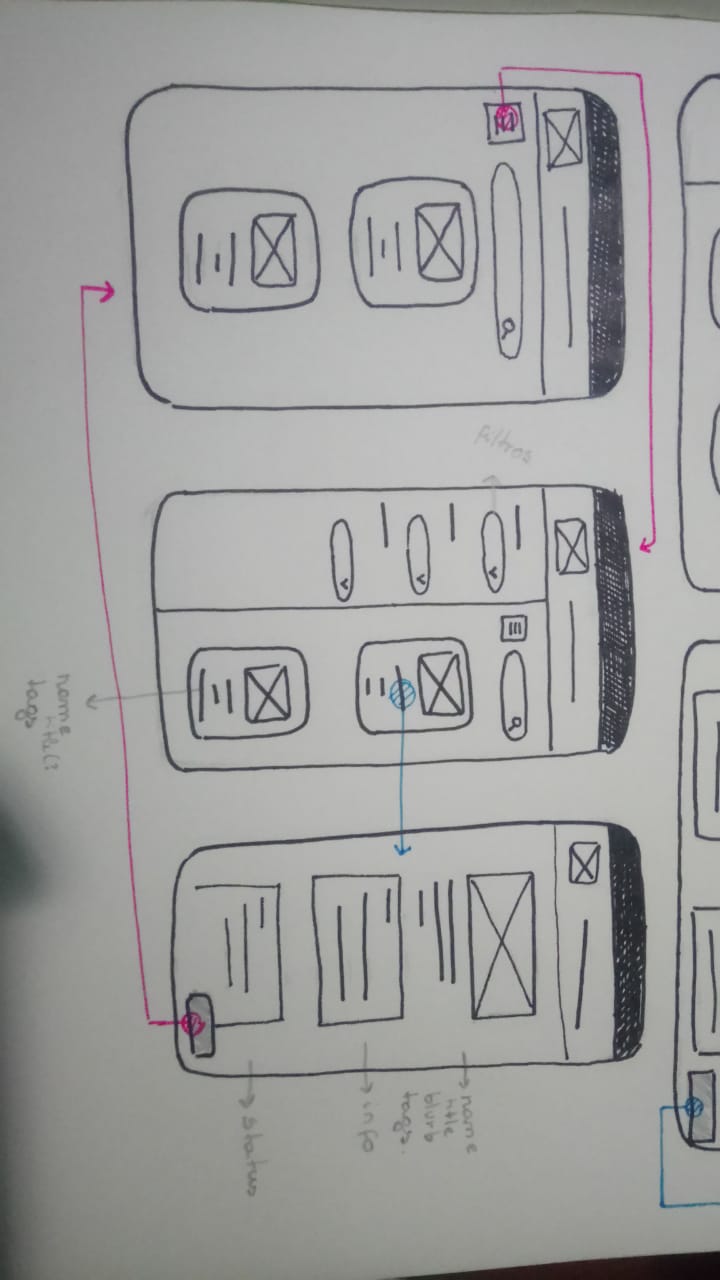 filtros
name
title
blurb
tags.
info
status
name
title(?
tags